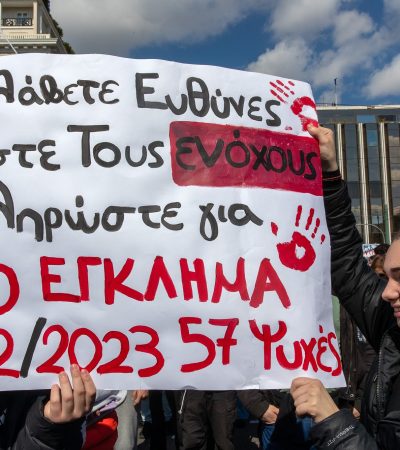 λάβετε Ευθύνες
στε Τους ενόχους
ληρώστε για
Ο ΕΓΚΛΗΜΑ
2/2023 57 Ψυχές